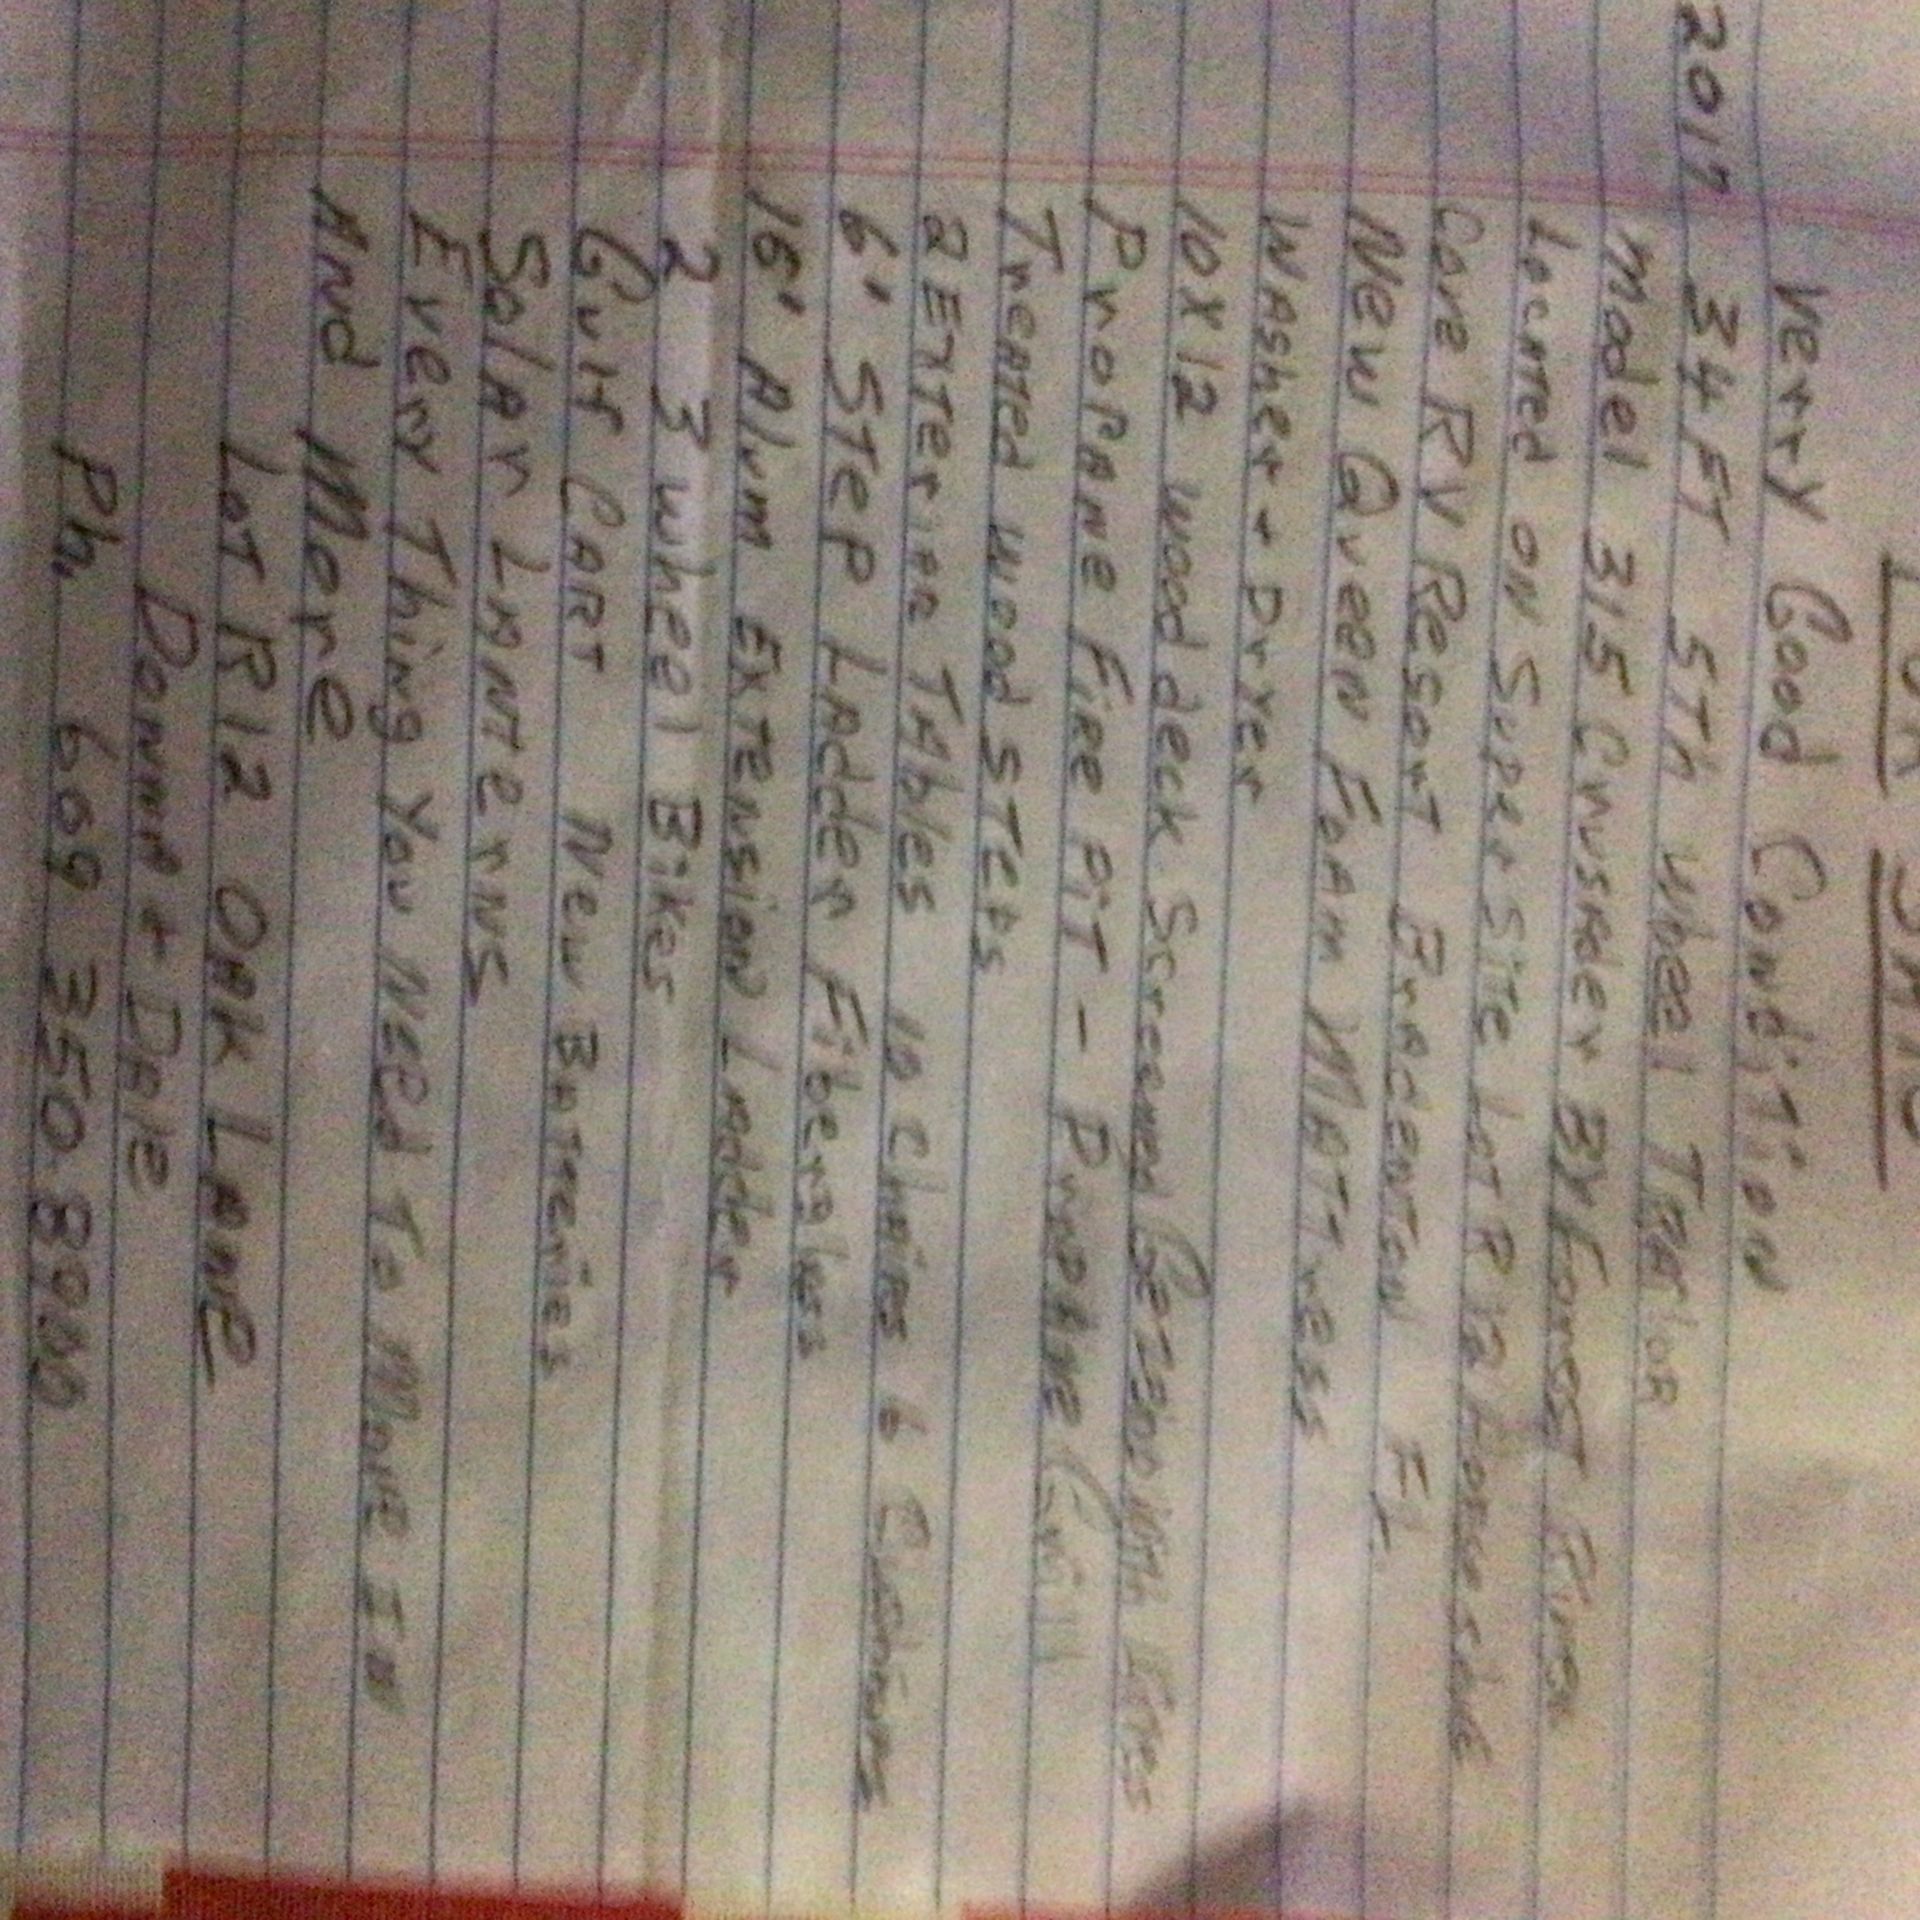 FOR SALE
Verry Good Condition
2017 34 FT 5Th Wheel TRAILOR
Model 315 Crusader BY Forest River
Located ON Super Site Lot R12 Horseshoe
Cove RV Resort BrAdENTON FL
New Queen FoAm MATTress
WAsher + Dryer
10X12 wood deck Screened Gezebo With
ProPAne Fire PiT - ProPAne Grill
TreATed wood STeps
2 TAbles 10 ChAirs 6
6' STeP LAdder Fiberglass
16' Alum EXTension LAdder
2 3 wheel Bikes
CART New BaTTeries
SolAr LANTerns
Every Thing You Need To Move In
And More
LoT R12 OAk LAne
Donna + Dale
Ph. 609 350